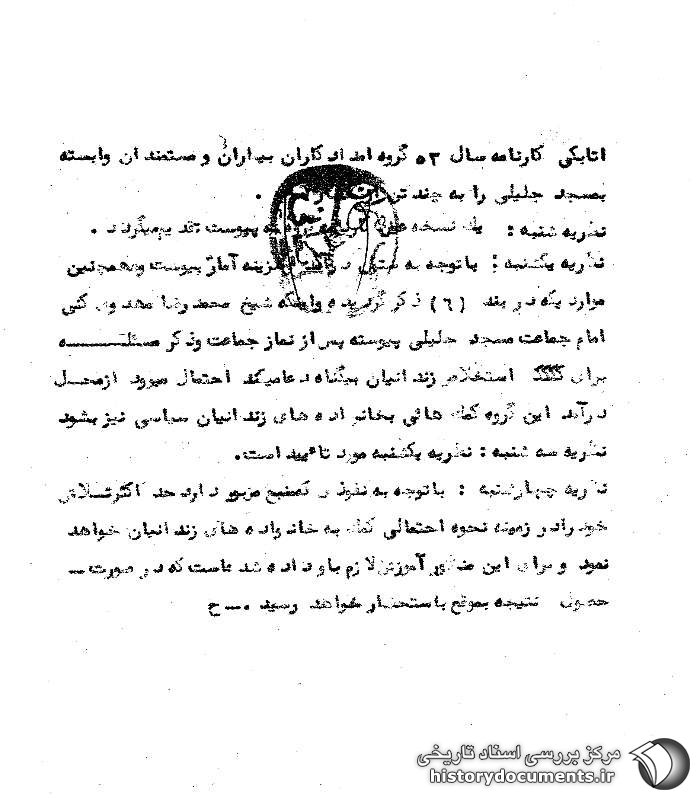 اتابکی کارنامه سال ۵۳ گروه امدادکاران بیماران و مستمندان وابسته
بمسجد جلیلی را به چند تن از
نظریه شنبه : یک نسخه به پیوست تقدیم میگردد .
نظریه یکشنبه : با توجه به هزینه آمار پیوست و همچنین
مواردیکه در بند (۶) ذکر گردیده و اینکه شیخ محمدرضا مهدوی کنی
امام جماعت مسجد جلیلی پیوسته پس از نماز جماعت و ذکر مسئلـــــــه
برای استخلاص زندانیان بیگناه دعا میکند احتمال میرود از محـل
درآمد این گروه کمک هائی بخانواده های زندانیان سیاسی نیز بشود
نظریه سه شنبه : نظریه یکشنبه مورد تائید است.
نظریه چهارشنبه : با توجه به نفوذ مزبور دارد حد اکثر تلاش
خود را در زمینه نحوه احتمالی کمک به خانواده های زندانیان خواهد
نمود و برای این منظور آموزش لازم باو داده شده است که در صورت ـ
حصول نتیجه بموقع باستحضار خواهد رسید . ـ ح
مرکز بررسی اسناد تاریخی
historydocuments.ir